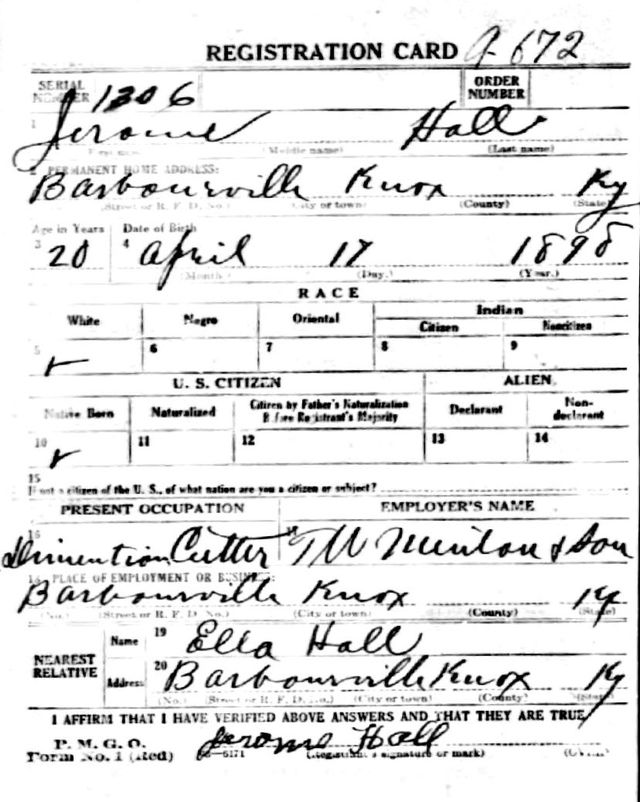 REGISTRATION CARD A-672
SERIAL NUMBER 1306 ORDER NUMBER
1 Jerome Hall
(First name) (Middle name) (Last name)
2 PERMANENT HOME ADDRESS:
Barbourville Knox Ky
(Street or R. F. D. No.) (City or town) (County) (State)
Age in Years Date of Birth
3 20 4 April 17 1898
(Month) (Day.) (Year.)
RACE
White Negro Oriental Indian
Citizen Noncitizen
5 ✓ 6 7 8 9
U. S. CITIZEN ALIEN
Native Born Naturalized Citizen by Father's Naturalization Before Registrant's Majority Declarant Non-declarant
10 ✓ 11 12 13 14
15
If not a citizen of the U. S., of what nation are you a citizen or subject?
PRESENT OCCUPATION EMPLOYER'S NAME
16 Dimention Cutter 17 T W Minton & Son
18 PLACE OF EMPLOYMENT OR BUSINESS:
Barbourville Knox Ky
(No.) (Street or R. F. D. No.) (City or town) (County) (State)
NEAREST RELATIVE
Name 19 Ella Hall
Address 20 Barbourville Knox Ky
(No.) (Street or R. F. D. No.) (City or town) (County) (State)
I AFFIRM THAT I HAVE VERIFIED ABOVE ANSWERS AND THAT THEY ARE TRUE
P. M. G. O.
Form No. 1 (Red) Jerome Hall
(Registrant's signature or mark)